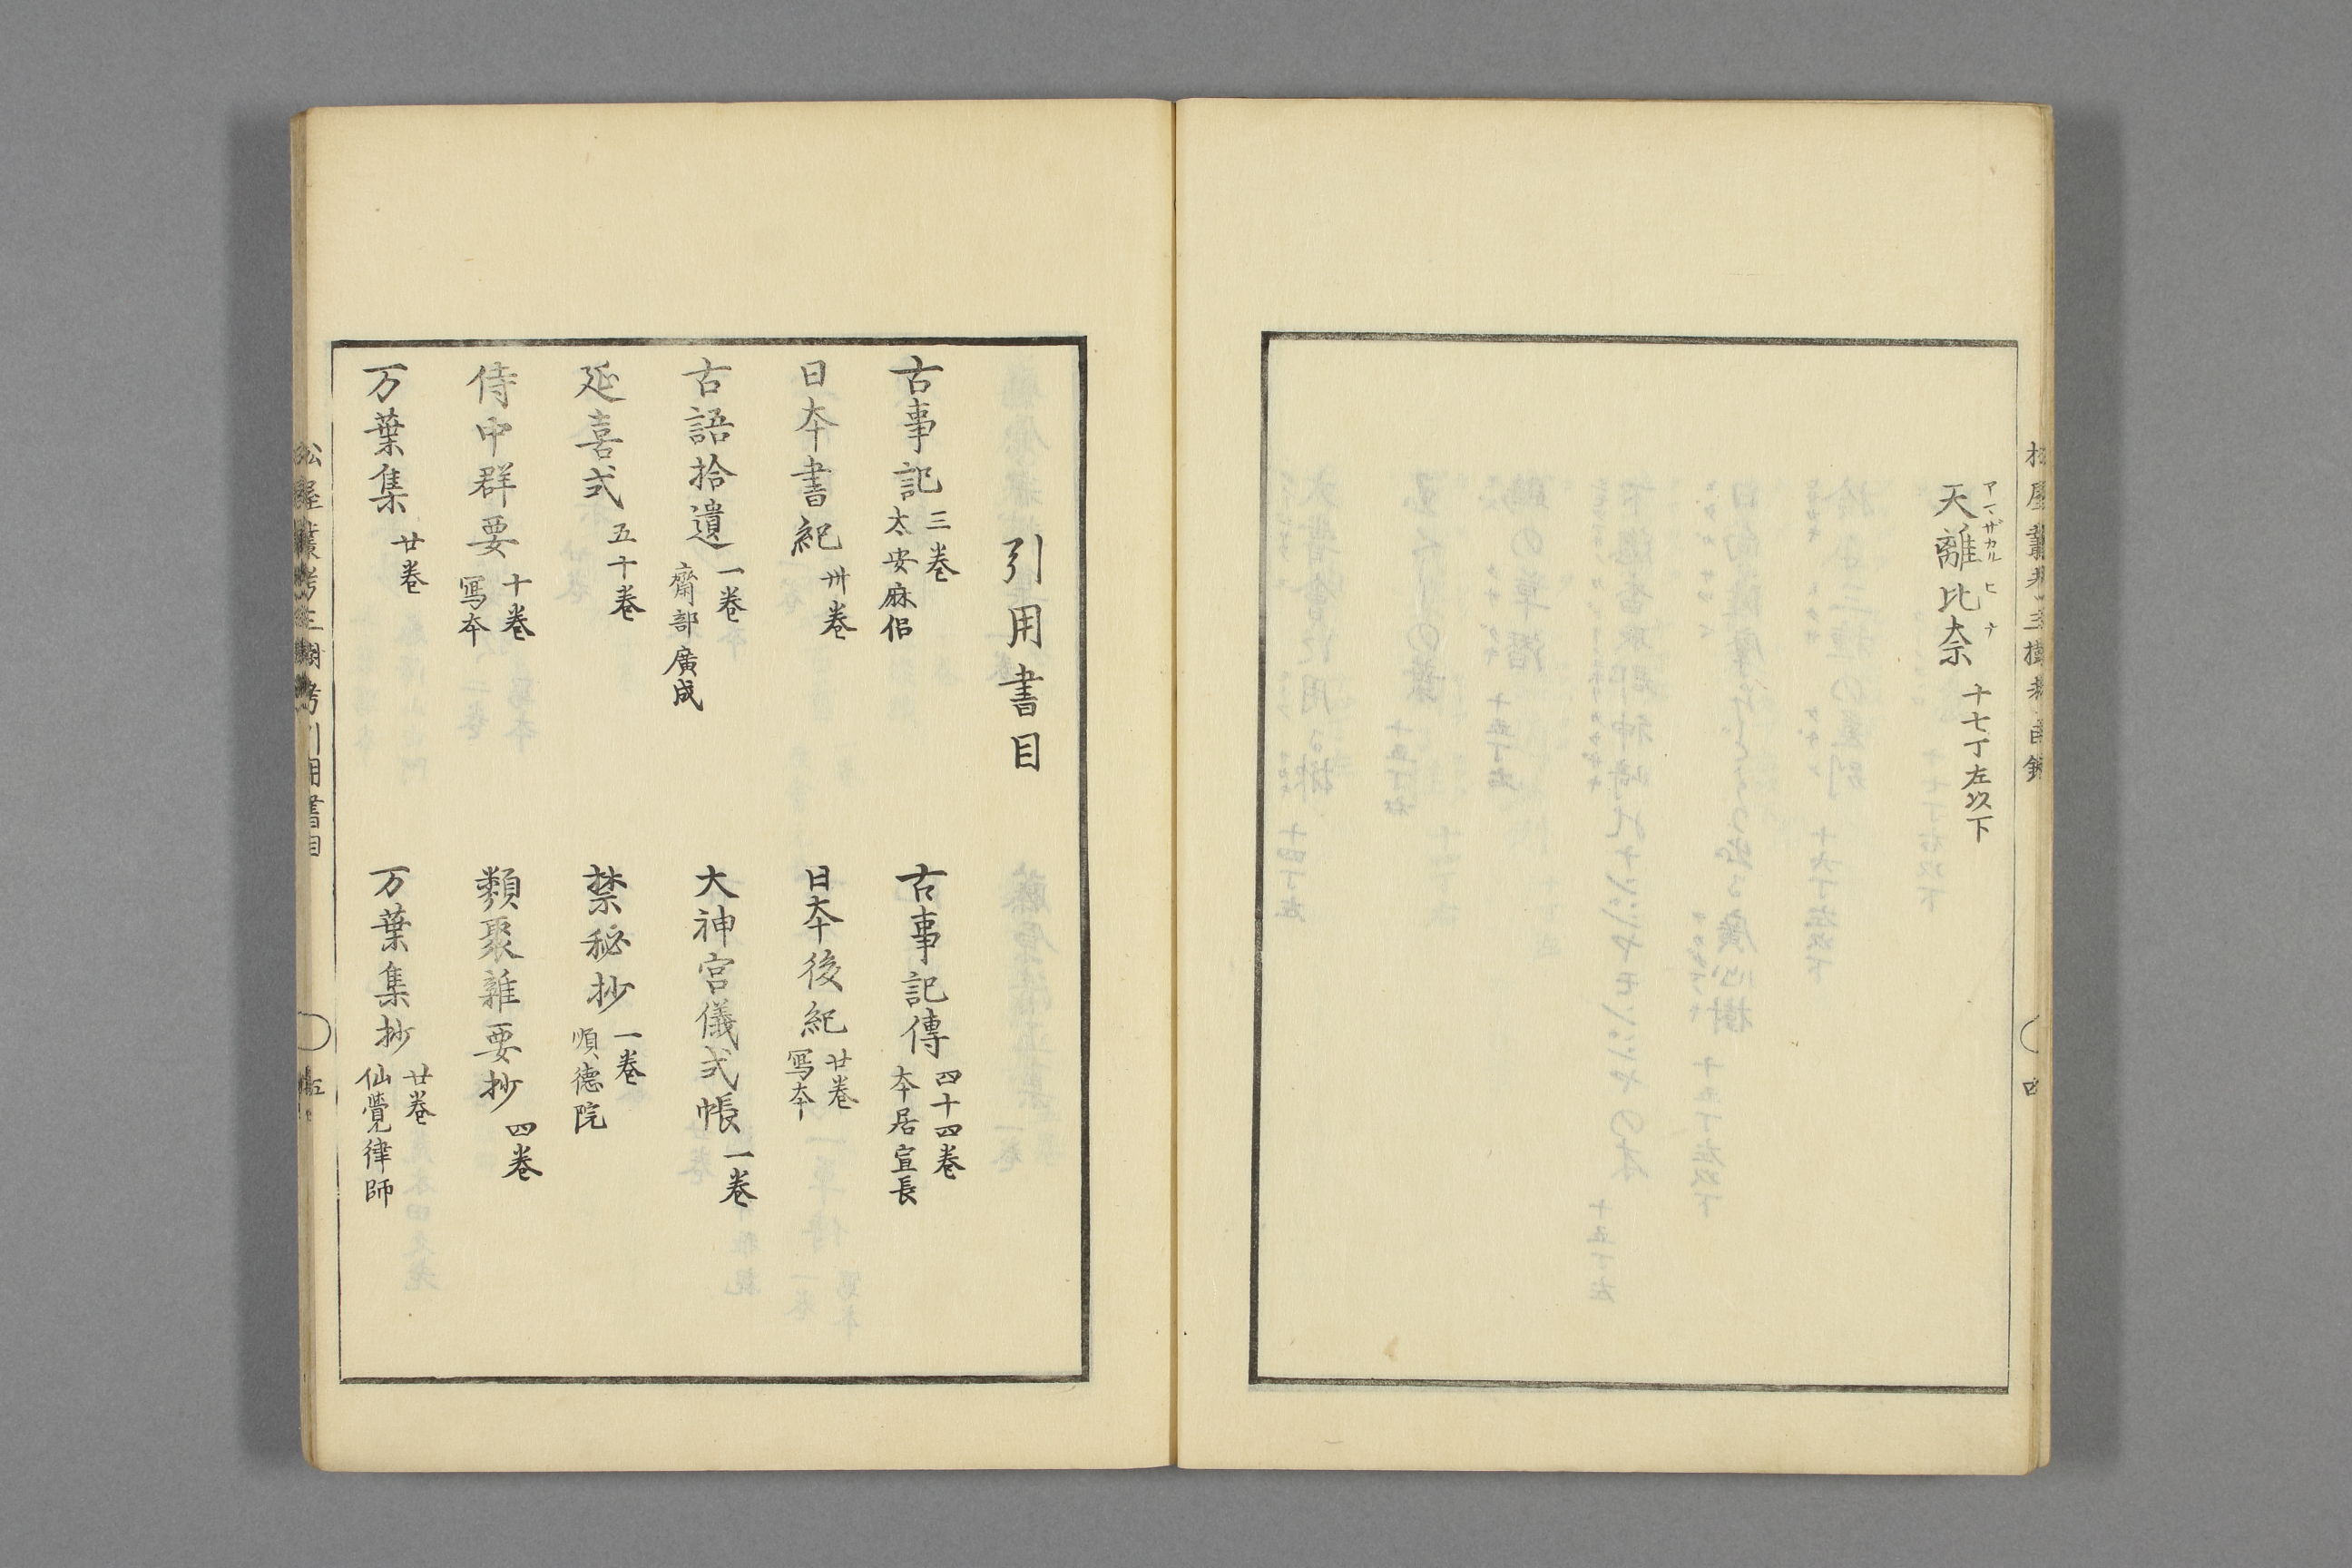 天離比奈 十七丁左以下
アマザカル ヒ ナ
引用書目
古事記 三巻 太安麻侶
古事記傳 四十四巻 本居宣長
日本書紀 卅巻
日本後紀 廿巻 写本
古語拾遺 一巻 齋部廣成
大神宮儀式帳 一巻
延喜式 五十巻
禁秘抄 一巻 順徳院
侍中群要 十巻 写本
類聚雑要抄 四巻
万葉集 廿巻
万葉集抄 廿巻 仙覺律師